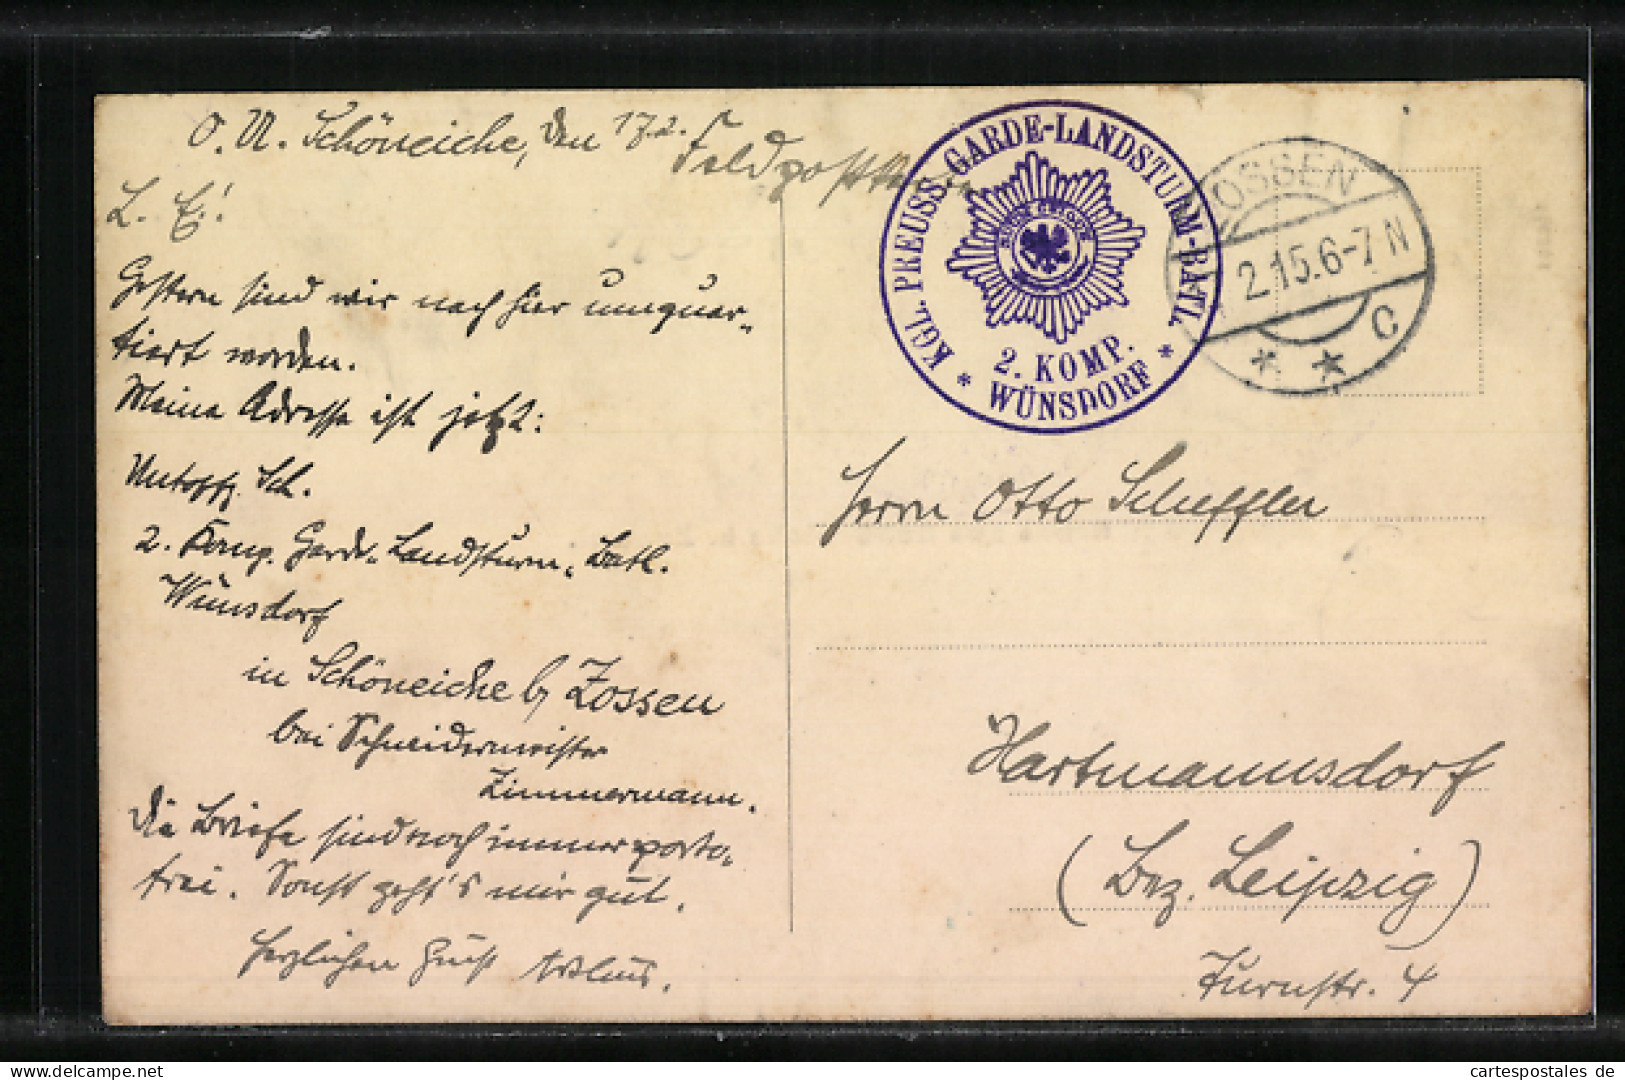 O. U. Schöneiche, den 17.2.
Feldpostkarte
L. E.!
Gestern sind wir nach hier umquar-
tiert worden.
Meine Adresse ist jetzt:
Untoffz. Sch.
2. Komp. Garde-Landsturm-Batl.
Wünsdorf
in Schöneiche b/ Zossen
bei Schneidermeister
Zimmermann.
Die Briefe sind noch immer porto-
frei. Sonst geht's mir gut.
Herzlichen Gruß
KGL. PREUSS. GARDE-LANDSTURM-BATL.
2. KOMP.
* WÜNSDORF *
ZOSSEN
2.15.6-7N
* * C
Herrn Otto Scheffler
Hartmannsdorf
(Bez. Leipzig)
Turnstr. 4
cartespostales de